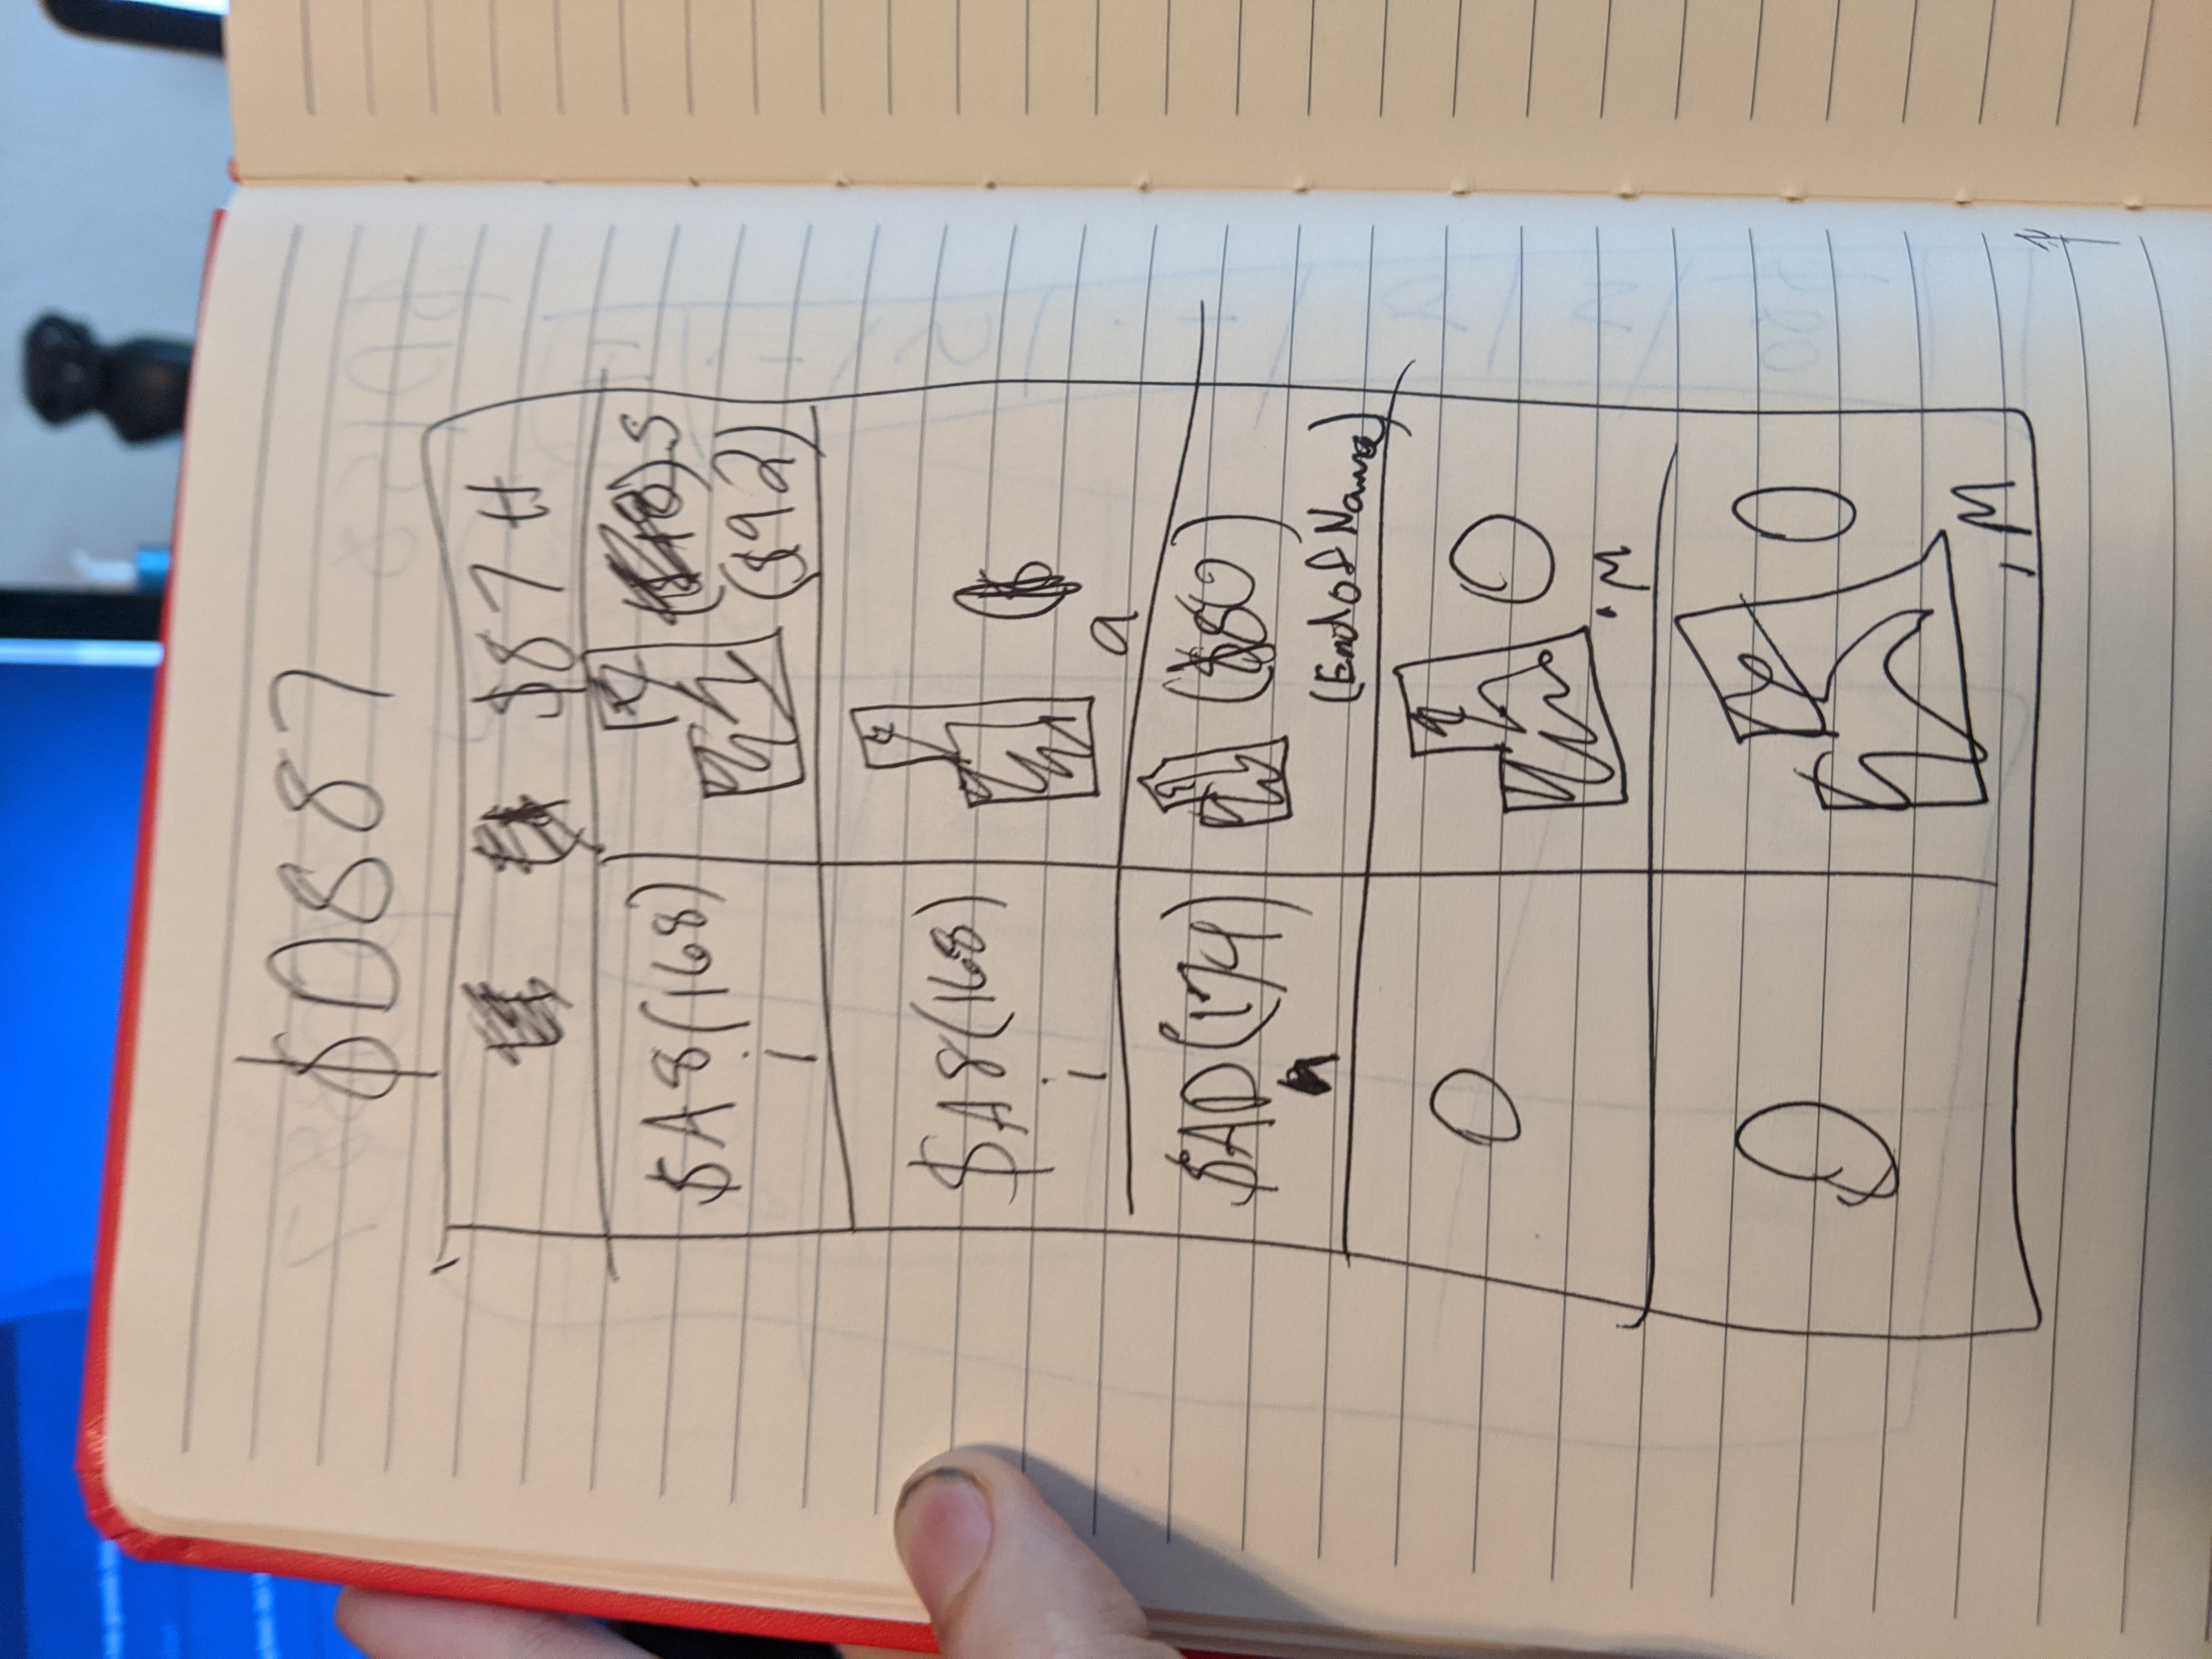 $D887
$87 H
$A8(168) S
i ($92)
$A8(168)
i a
$AD(174) ($80)
(End of Name)
0 0
.M
0 0
,M